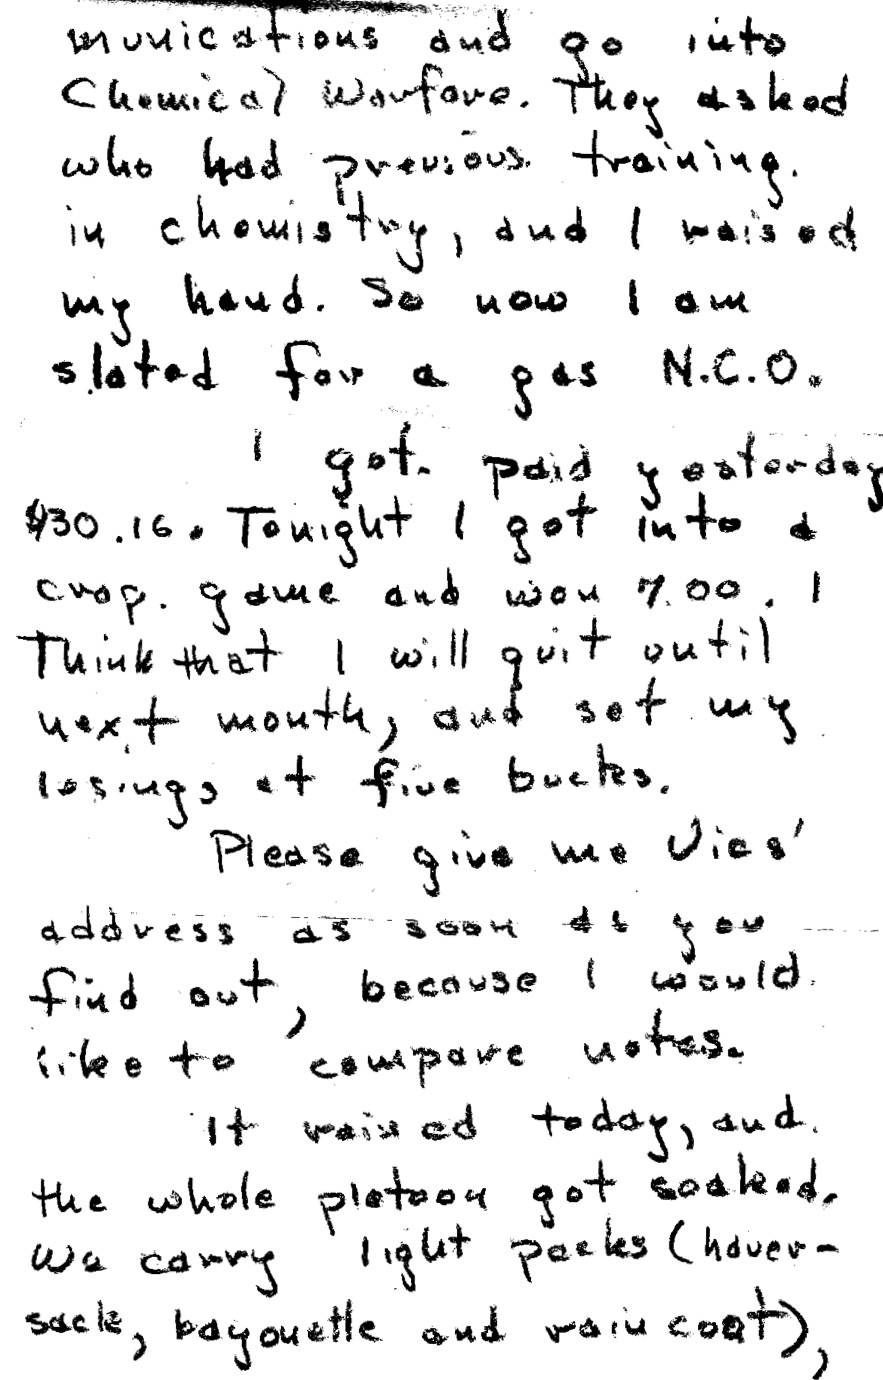 munications and go into
Chemical Warfare. They asked
who had previous training.
in chemistry, and I raised
my hand. So now I am
slated for a gas N.C.O.
I got paid yesterday
$30.16. Tonight I got into a
crap. game and won 7.00. I
Think that I will quit until
next month, and set my
losings at five bucks.
Please give me Vics'
address as soon as you
find out, because I would
like to compare notes.
It rained today, and
the whole platoon got soaked.
We carry light packs (haver-
sack, bayonette and raincoat),